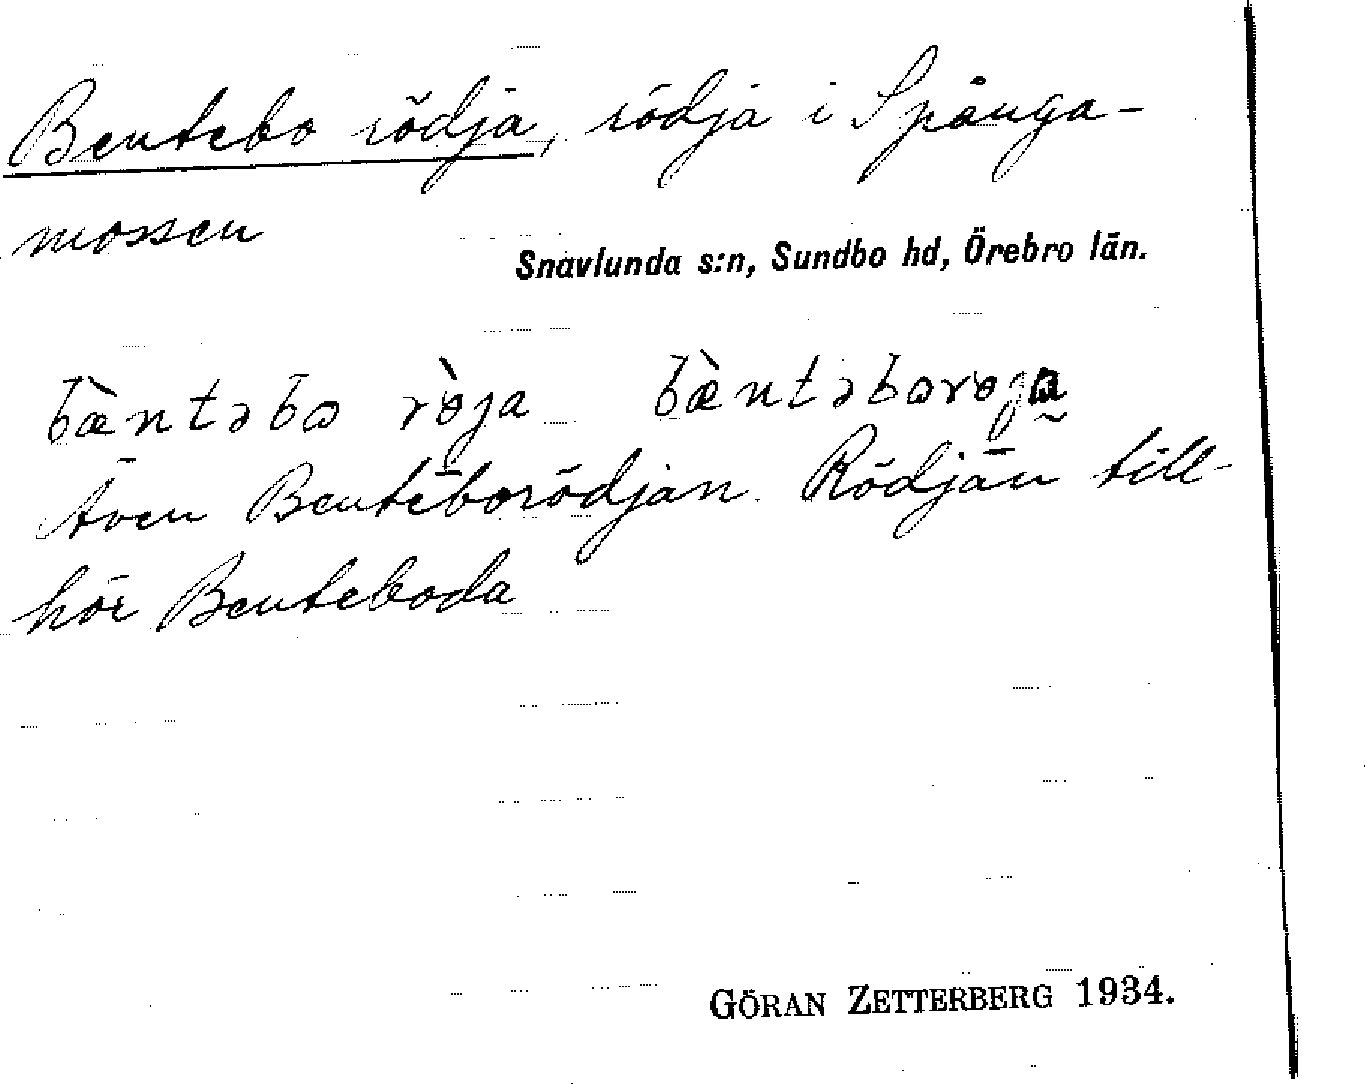 Bentebo rödja, rödja i Spånga-
mossen
Snavlunda s:n, Sundbo hd, Örebro län.
bæ̀ntəbo rø̀ja bæ̀ntəborøja
Även Benteborödjan. Rödjan till-
hör Benteboda
GÖRAN ZETTERBERG 1934.